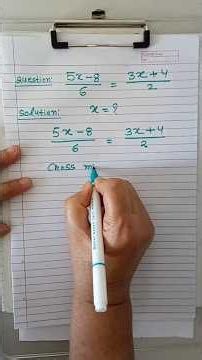 Question: (5x-8)/6 = (3x+4)/2
Solution: x = ?
(5x-8)/6 = (3x+4)/2
Cross m